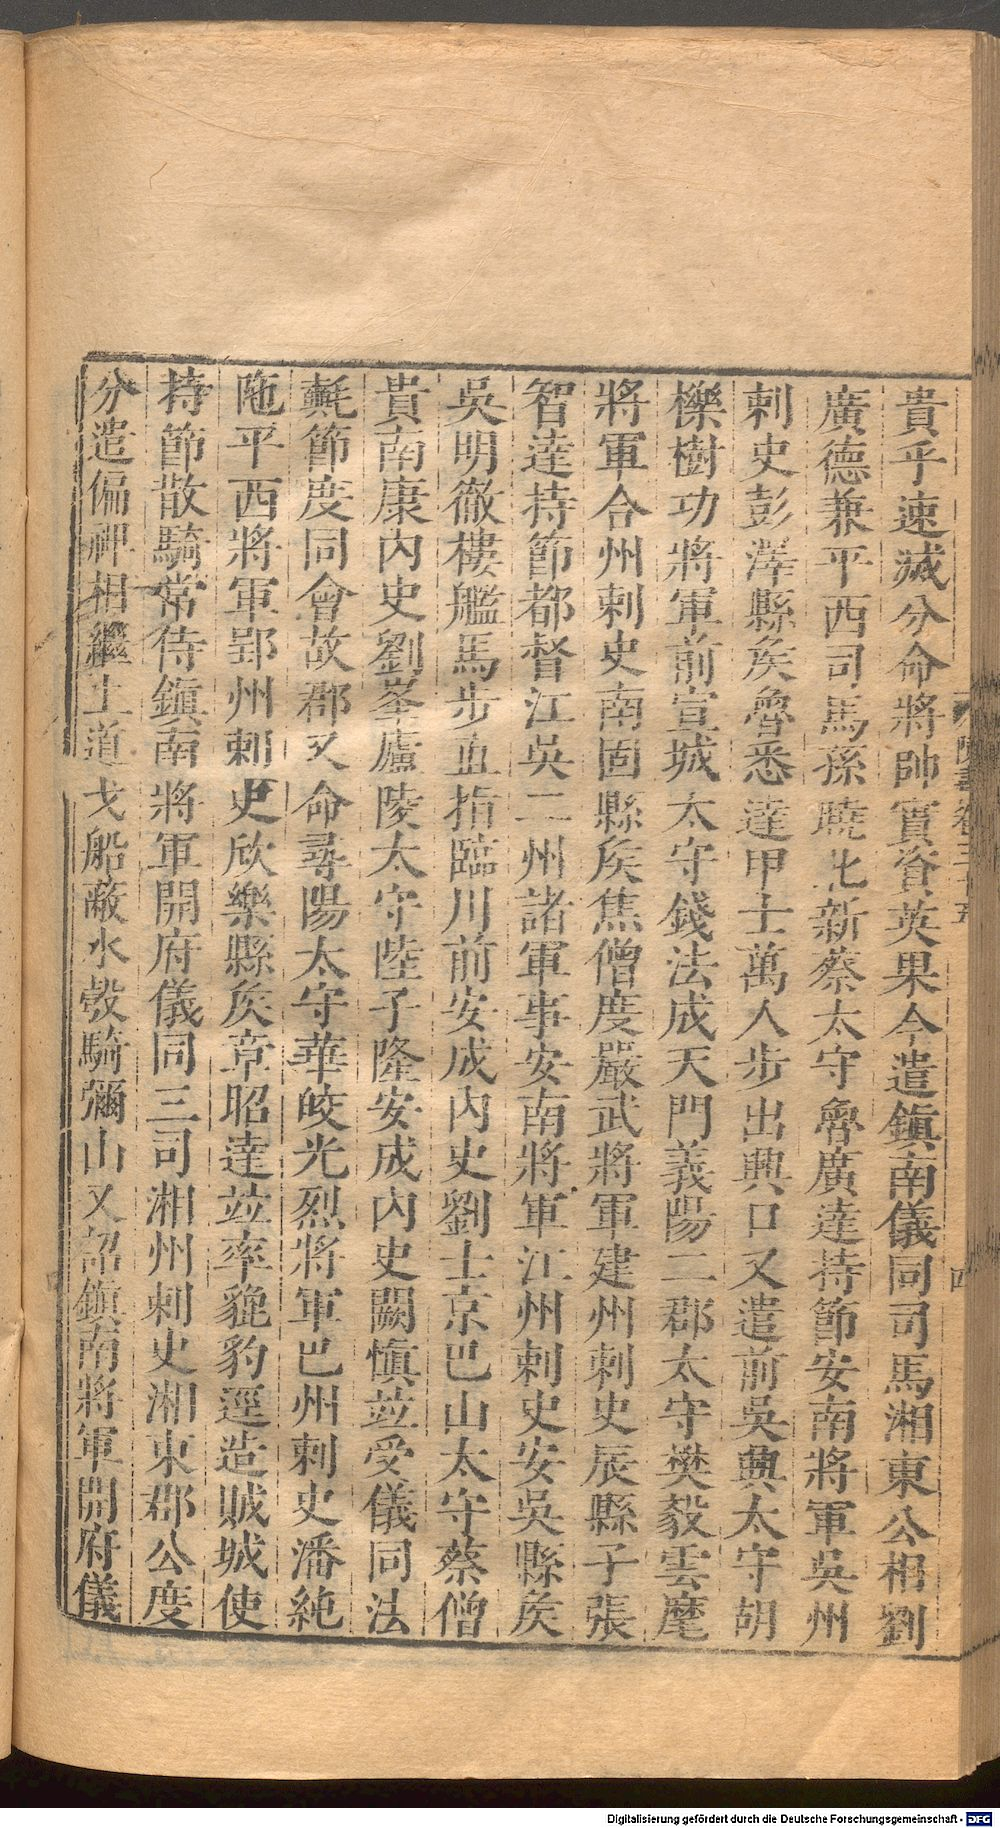 貴乎速滅分命將帥實資英果今遣鎮南儀同司馬湘東公相劉
廣德兼平西司馬孫曉北新蔡太守魯廣達持節安南將軍吳州
刺史彭澤縣矦魯悉達甲士萬人步出興口又遣前吳興太守胡
櫟樹功將軍前宣城太守錢法成天門義陽二郡太守樊毅雲麾
將軍合州刺史南固縣矦焦僧度嚴武將軍建州刺史辰縣子張
智達持節都督江吳二州諸軍事安南將軍江州刺史安吳縣矦
吳明徹樓艦馬步並指臨川前安成內史劉士京巴山太守蔡僧
貴南康內史劉峯廬陵太守陸子隆安成內史闕慎並受儀同法
𣰋節度同會故郡又命尋陽太守華皎光烈將軍巴州刺史潘純
陁平西將軍郢州刺史欣樂縣矦章昭達並率貔豹逕造賊城使
持節散騎常侍鎮南將軍開府儀同三司湘州刺史湘東郡公度
分遣偏裨相繼上道戈船蔽水彀騎彌山又詔鎮南將軍開府儀
陳書卷三十五
四
Digitalisierung gefördert durch die Deutsche Forschungsgemeinschaft - DFG